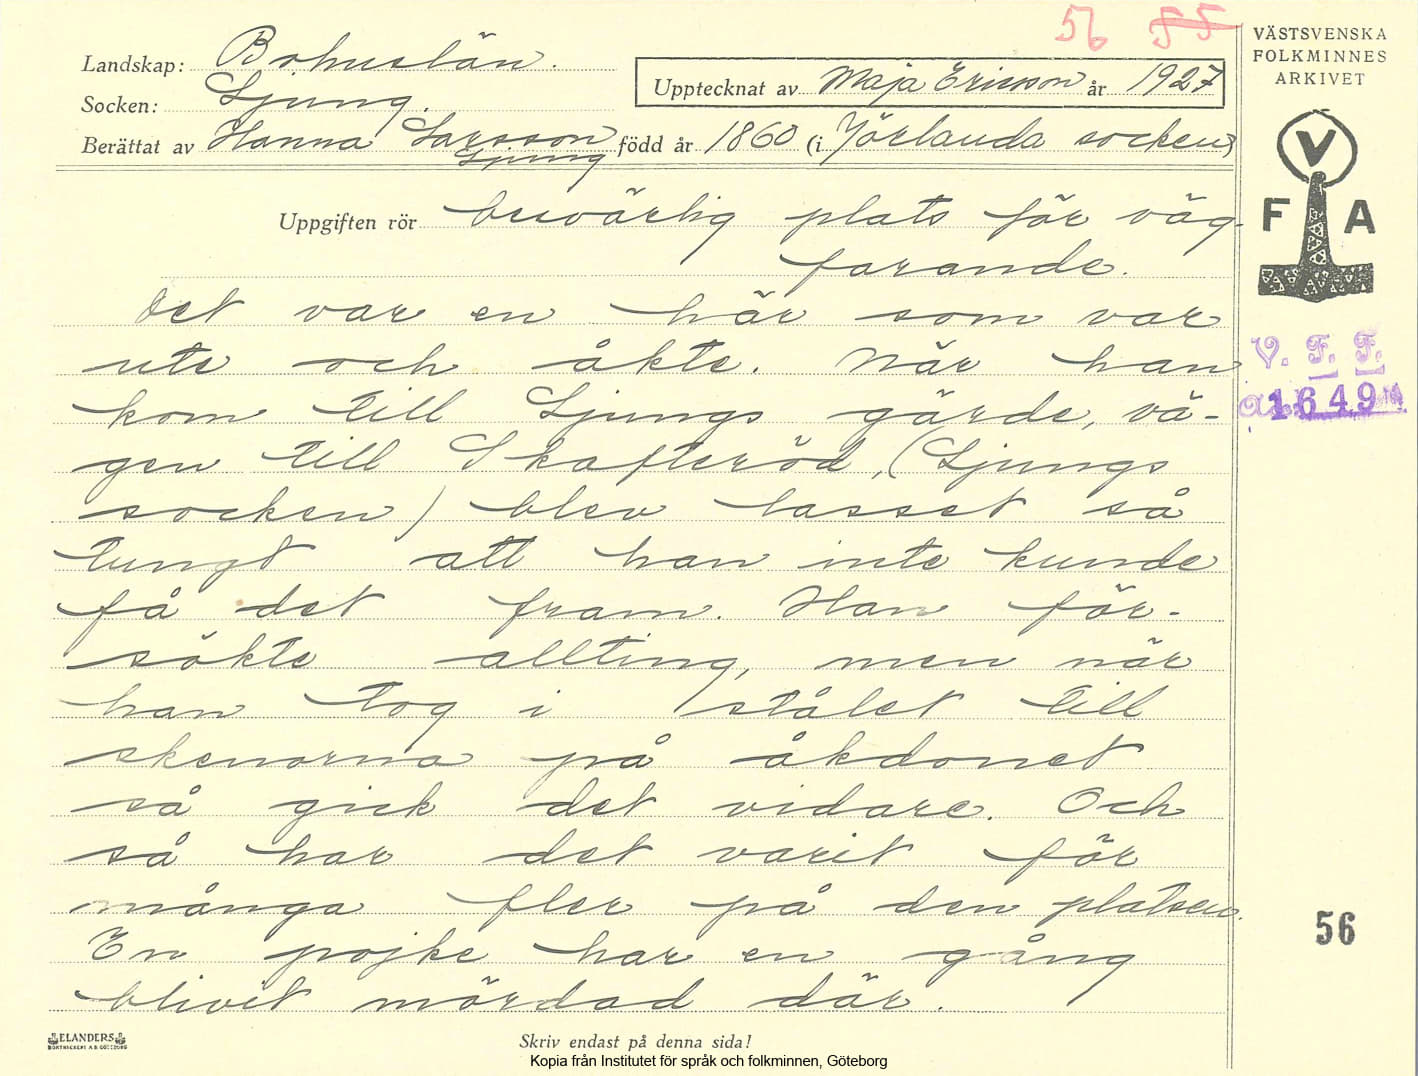 56 55
VÄSTSVENSKA
FOLKMINNES
ARKIVET
Landskap: Bohuslän.
Upptecknat av Maja Ericsson år 1927
Socken: Ljung.
Berättat av Hanna Larsson född år 1860 (i Jörlanda socken)
Ljung
V
F A
Uppgiften rör besvärlig plats för väg-
farande.
Det var en här som var
ute och åkte. När han
kom till Ljungs gärde, vä-
gen till Skafteröd, (Ljungs
socken) blev lasset så
tungt att han inte kunde
få det fram. Han för-
sökte allting, men när
han tog i stålet till
skenorna på åkdonet
så gick det vidare. Och
så har det varit för
många fler på den platsen.
En pojke har en gång
blivit mördad där.
V. F. F.
1649
56
ELANDERS
BOKTRYCKERI A.B. GÖTEBORG
Skriv endast på denna sida!
Kopia från Institutet för språk och folkminnen, Göteborg